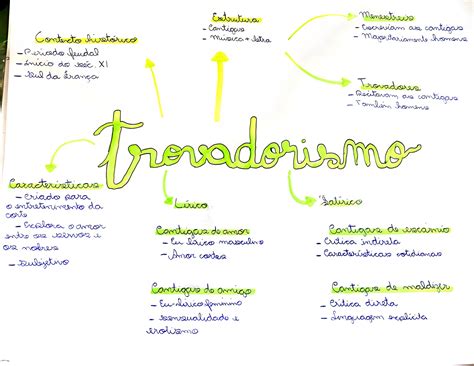 Contexto histórico
- Período feudal
- Início do séc. XI
- Sul da França
Estrutura
- Cantigas
- Música + letra
Menestréis
- Escreviam as cantigas
- Majoritariamente homens
Trovadores
- Recitavam as cantigas
- Também homens
trovadorismo
Características
- Criado para
o entretenimento da
corte
- Explora o amor
entre os servos e
os nobres
- Subjetivo
Lírico
Cantigas de amor
- Eu lírico masculino
- Amor cortes
Cantigas de amigo
- Eu-lírico feminino
- sensualidade e
erotismo
Satírico
Cantigas de escárnio
- Crítica indireta
- Características cotidianas
Cantigas de maldizer
- Crítica direta
- Linguagem explícita